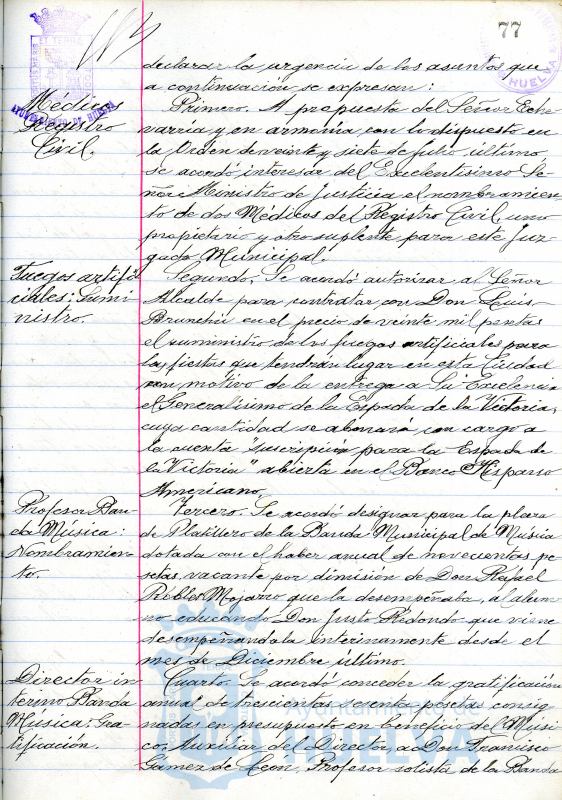 77
AYUNTAMIENTO DE HUELVA
HUELVA
declarar la urgencia de los asuntos que
a continuación se expresan:
Médicos
Registro
Civil.
Primero. A propuesta del Señor Eche-
varria y en armonia con lo dispuesto en
la Orden de veinte y siete de Julio último
se acordó interesar del Excelentisimo Se-
ñor Ministro de Justicia el nombramien-
to de dos Médicos del Registro Civil, uno
propietario y otro suplente para este Juz-
gado Municipal.
Fuegos artifi-
ciales: Sumi-
nistro.
Segundo. Se acordó autorizar al Señor
Alcalde para contratar con Don Luis
Brunchú en el precio de veinte mil pesetas
el suministro de los fuegos artificiales para
las fiestas que tendrán lugar en esta Ciudad
con motivo de la entrega a Su Excelencia
el Generalísimo de la Espada de la Victoria,
cuya cantidad se abonará con cargo a
la cuenta "Suscripción para la Espada de
la Victoria" abierta en el Banco Hispano
Americano.
Profesor Ban-
da Música:
Nombramien-
to.
Tercero. Se acordó designar para la plaza
de Platillero de la Banda Municipal de Música
dotada con el haber anual de novecientas pe-
setas, vacante por dimisión de Don Rafael
Robles Mojarro que la desempeñaba, al alum-
no educando Don Justo Redondo que viene
desempeñandola interinamente desde el
mes de Diciembre último.
Director in-
terino Banda
Música: Gra-
tificación.
Cuarto. Se acordó conceder la gratificación
anual de trescientas sesenta pesetas consig-
nadas en presupuesto en beneficio del Músi-
co Auxiliar del Director, a Don Francisco
Gámez de Leon, Profesor solista de la Banda
Ayuntamiento
HUELVA